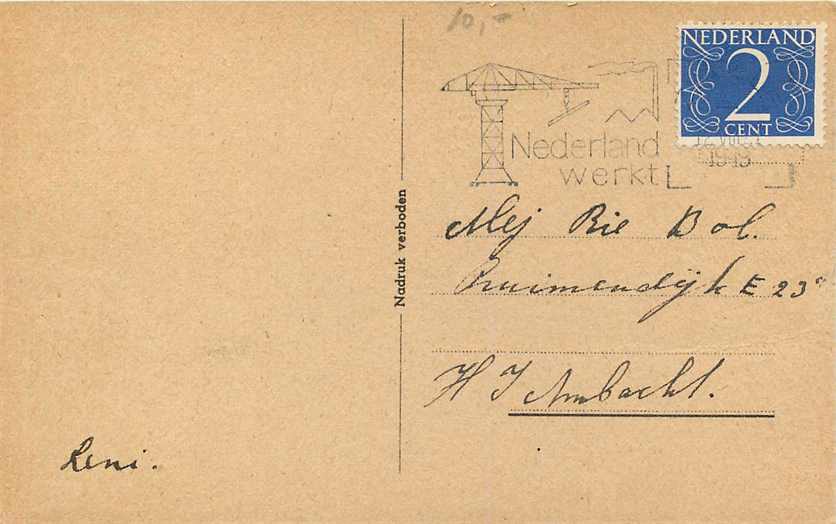 10,-
NEDERLAND
2
CENT
Nederland
werkt
Nadruk verboden
Mej Rie Bol.
Pruimendijk E 23
H I Ambacht.
Leni.